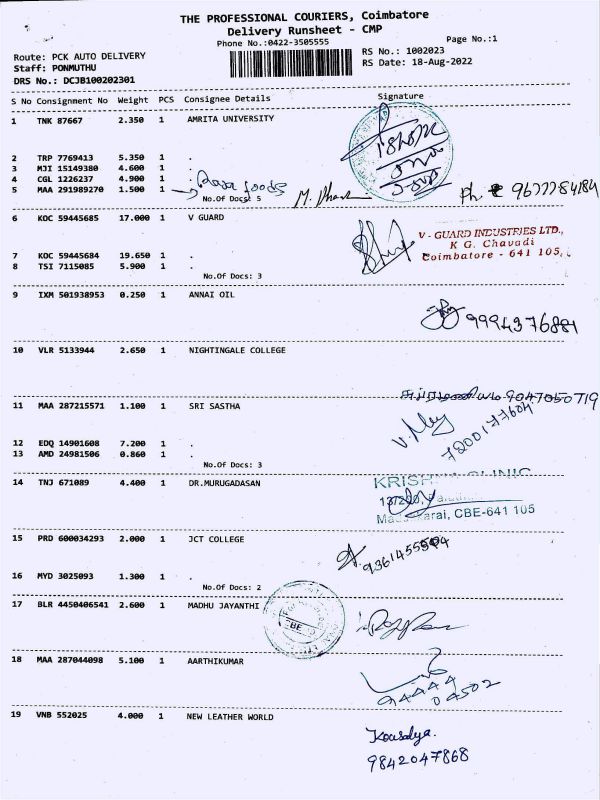 THE PROFESSIONAL COURIERS, Coimbatore
Delivery Runsheet - CMP
Phone No.:0422-3505555
Page No.:1
Route: PCK AUTO DELIVERY
RS No.: 1002023
Staff: PONMUTHU
RS Date: 18-Aug-2022
DRS No.: DCJB100202301
S No Consignment No Weight PCS Consignee Details Signature
1 TNK 87667 2.350 1 AMRITA UNIVERSITY
2 TRP 7769413 5.350 1 .
3 MJI 15149380 4.600 1 .
4 CGL 1226237 4.900 1 .
5 MAA 291989270 1.500 1 foods
No.Of Docs: 5
6 KOC 59445685 17.000 1 V GUARD
V - GUARD INDUSTRIES LTD.,
K G. Chavadi
Coimbatore - 641 105.
7 KOC 59445684 19.650 1 .
8 TSI 7115085 5.900 1 .
No.Of Docs: 3
9 IXM 501938953 0.250 1 ANNAI OIL
9994376881
10 VLR 5133944 2.650 1 NIGHTINGALE COLLEGE
9047050719
11 MAA 287215571 1.100 1 SRI SASTHA
12 EDQ 14901608 7.200 1 .
13 AMD 24981506 0.860 1 .
No.Of Docs: 3
14 TNJ 671089 4.400 1 DR.MURUGADASAN
CLINIC
CBE-641 105
15 PRD 600034293 2.000 1 JCT COLLEGE
16 MYD 3025093 1.300 1 .
No.Of Docs: 2
17 BLR 4450406541 2.600 1 MADHU JAYANTHI
18 MAA 287044098 5.100 1 AARTHIKUMAR
94444
04502
19 VNB 552025 4.000 1 NEW LEATHER WORLD
Kousalya.
9842047868